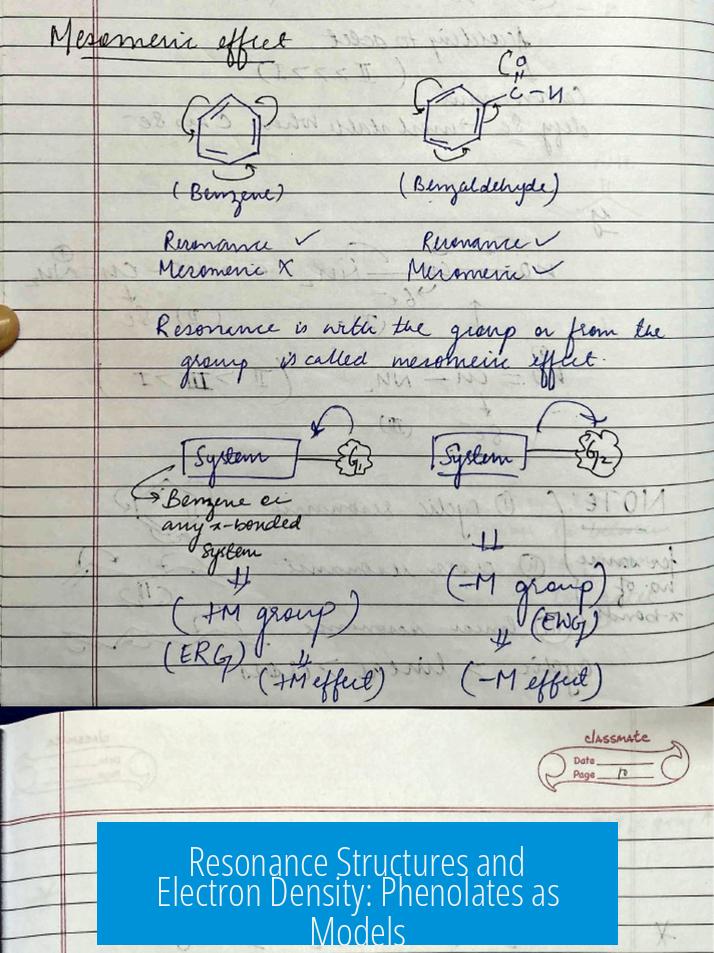 Mesomeric effect
O
C-H
(Benzene)
(Benzaldehyde)
Resonance ✓
Resonance ✓
Mesomeric X
Mesomeric ✓
Resonance is with the group or from the
group is called mesomeric effect.
System
G1
System
G2
Benzene or
any π-bonded
System
(+M group)
(ERG)
(+M effect)
(-M group)
(EWG)
(-M effect)
classmate
Date
Page 10
Resonance Structures and
Electron Density: Phenolates as
Models